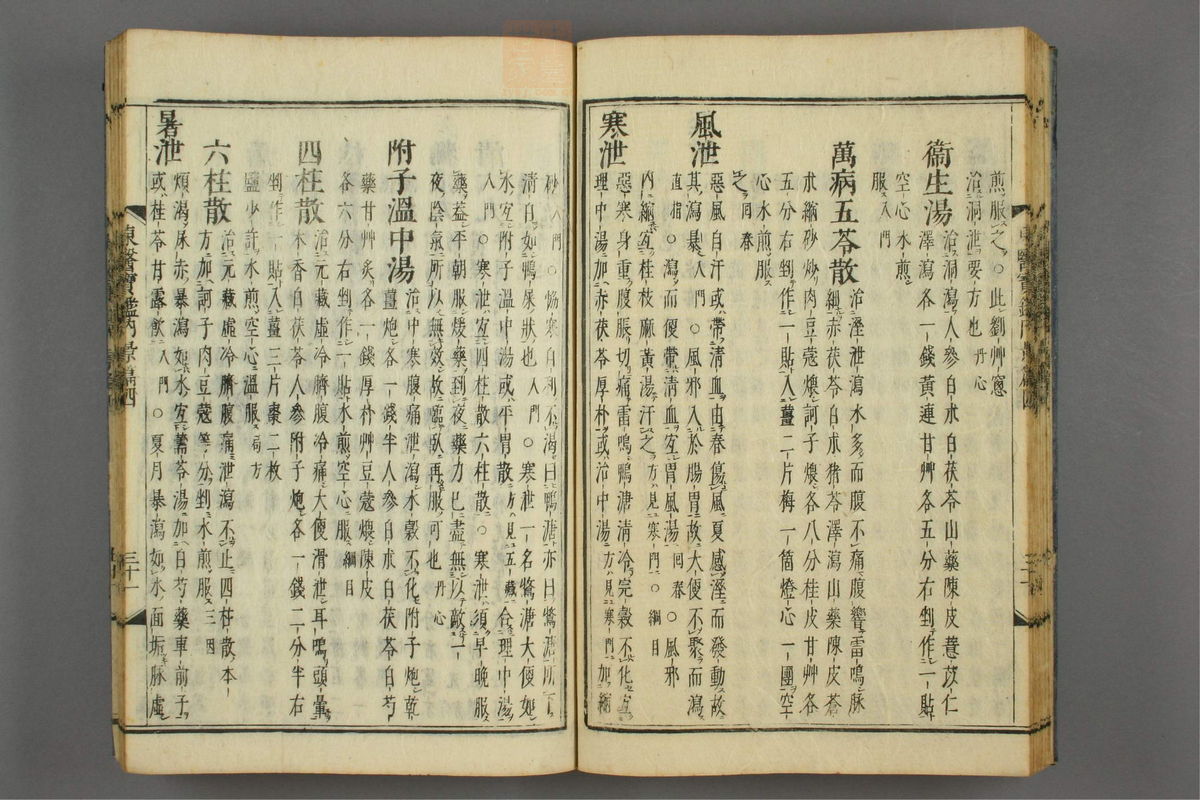 煎服之○此劉草窓
治洞泄要方也丹心
衞生湯治洞瀉人參白朮白茯苓山藥陳皮薏苡仁
澤瀉各一錢黃連甘艸各五分右剉作一貼
空心水煎
服入門
萬病五苓散治溼泄瀉水多而腹不痛腹響雷鳴脉
細赤茯苓白朮猪苓澤瀉山藥陳皮蒼
朮縮砂炒肉豆蔻煨訶子煨各八分桂皮甘艸各
五分右剉作一貼入薑二片梅一箇燈心一團空
心水煎服
之回春
風泄惡風自汗或帶淸血由春傷風夏感溼而發動故
其瀉暴入門○風邪入於腸胃故大便不聚而瀉
直指○瀉而便帶淸血宜胃風湯回春○風邪
內縮宜桂枝麻黃湯汗之方見寒門○綱目
寒泄惡寒身重腹脹切痛雷鳴鴨溏淸冷完穀不化宜
理中湯加赤茯苓厚朴或治中湯方見寒門加縮
砂入門○惱寒自利不渴曰鴨溏亦曰鶩溏所下
淸白如鴨屎狀也入門○寒泄一名鶩溏大便如
水宜附子溫中湯或平胃散方見五藏合理中湯
入門○寒泄宜四柱散六柱散○寒泄須早晩服
藥益平朝服煖藥到夜藥力已盡無以敵一
夜陰氣所以無效故臨臥再服可也丹心
附子溫中湯治中寒腹痛泄瀉水穀不化附子炮乾
薑炮各一錢半人參白朮白茯苓白芍
藥甘艸炙各一錢厚朴艸豆蔻煨陳皮
各六分右剉作一貼水煎空心服綱目
四柱散治元藏虛冷臍腹冷痛大便滑泄耳鳴頭暈
木香白茯苓人參附子炮各一錢二分半右
剉作一貼入薑三片棗二枚
鹽少許水煎空心溫服局方
六柱散治元藏虛冷臍腹痛泄瀉不止四柱散本
方加訶子肉豆蔻等分剉水煎服三因
暑泄煩渴尿赤暴瀉如水宜薷苓湯加白芍藥車前子
或桂苓甘露飮入門○夏月暴瀉如水面垢脉虛
東醫寶鑑內景篇四
三十一